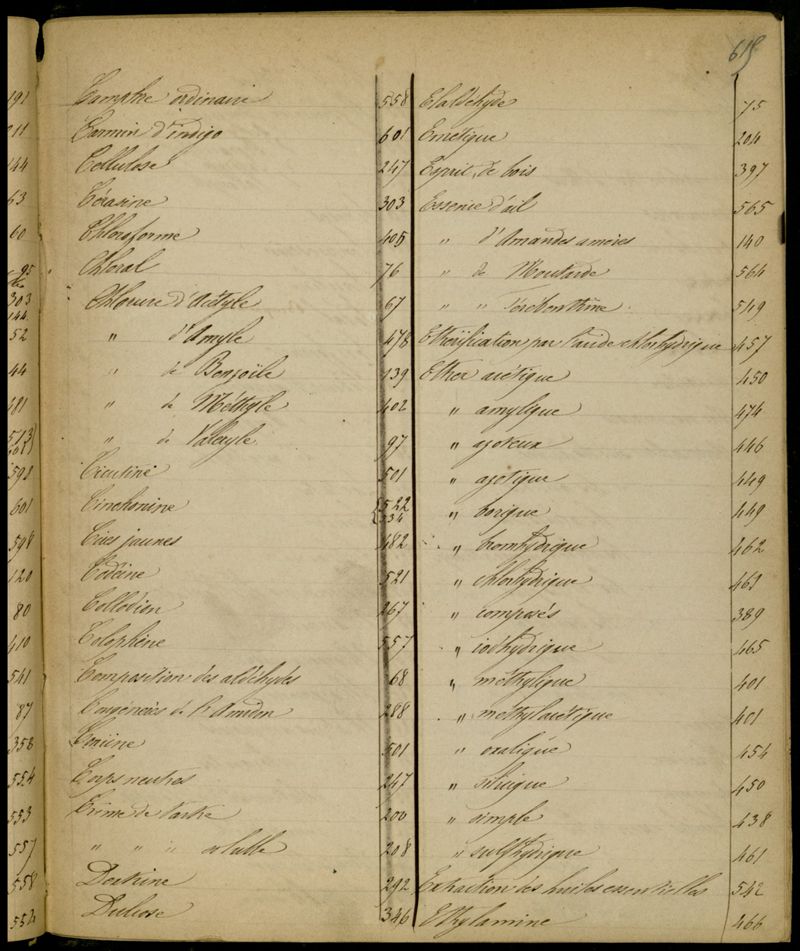 615
191
211
144
63
60
95
303
144
52
44
481
513
592
601
598
120
80
410
541
87
358
554
553
557
558
552
Camphre ordinaire 558
Carmin d'indigo 601
Cellulose 247
Cérasine 303
Chloroforme 405
Chloral 76
Chlorure d'Acétyle 67
" d'Amyle 478
" de Benzoïle 139
" de Méthyle 402
" de Valéryle 97
Cicutine 501
Cinchonine {522
534
Cires jaunes 482
Codéine 521
Collodion 267
Colophène 557
Composition des aldéhydes 68
Congénères de l'Amidon 288
Conine 501
Corps neutres 247
Crème de tartre 200
" " " soluble 208
Dextrine 292
Dulcose 346
Elaldehyde 75
Emétique 204
Esprit de bois 397
Essence d'ail 565
" d'Amandes amères 140
" de Moutarde 564
" " Térébenthine 549
Ethérification par l'acide chlorhydrique 457
Ether acétique 450
" amylique 474
" azoteux 446
" azotique 449
" borique 449
" bromhydrique 462
" chlorhydrique 462
" composés 389
" iodhydrique 465
" méthylique 401
" méthylacétique 401
" oxalique 454
" silicique 450
" simple 438
" sulfhydrique 461
Extraction des huiles essentielles 542
Ethylamine 466